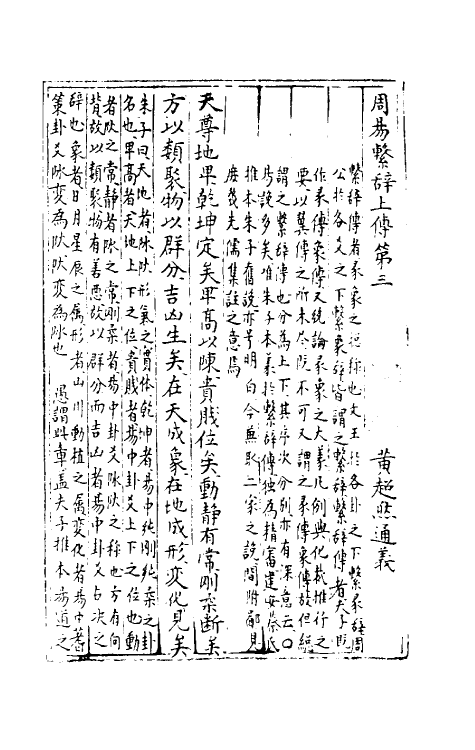 周易繫辭上傳第三
黃超然通義
繫辭傳者彖象之總稱也文王於各卦之下繫彖辭周
公於各爻之下繫象辭皆謂之繫辭繫辭傳者夫子既
作彖傳象傳又統論彖象之大義凡例與化裁推行之
要以冀傳之所未盡既不可又謂之彖傳象傳故但總
謂之繫辭傳也分為上下其序次分別亦有深意云〇
為說多矣唯朱子本義於繫辭傳獨為精密建安蔡氏
推本朱子舊說亦多明白今兼取二家之說間附鄙見
庶幾先儒集註之意焉
天尊地卑乾坤定矣卑高以陳貴賤位矣動靜有常剛柔斷矣
方以類聚物以群分吉凶生矣在天成象在地成形變化見矣
朱子曰天地者陰陽形氣之實體乾坤者易中純剛純柔之卦
名也卑高者天地上下之位貴賤者易中卦爻上下之位也動
者陽之常靜者陰之常剛柔者易中卦爻陰陽之稱也方有向
背故以類聚物有善惡故以群分而吉凶者易中卦爻占決之
辭也象者日月星辰之屬形者山川動植之屬變化者易中蓍
策卦爻陰變為陽陽變為陰也 愚謂此章蓋夫子推本易道之